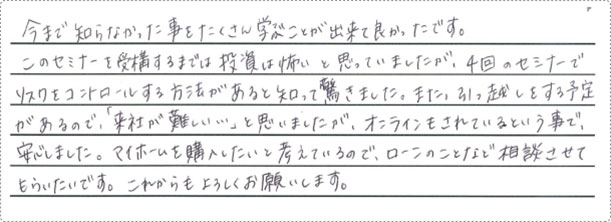 今まで知らなかった事をたくさん学ぶことが出来て良かったです。
このセミナーを受構するまでは投資は怖いと思っていましたが、4回のセミナーで
リスクをコントロールする方法があると知って驚きました。また、引っ越しをする予定
があるので、「来社が難しい…」と思いましたが、オンラインもされているという事で、
安心しました。マイホームを購入したいと考えているので、ローンのことなど相談させて
もらいたいです。これからもよろしくお願いします。